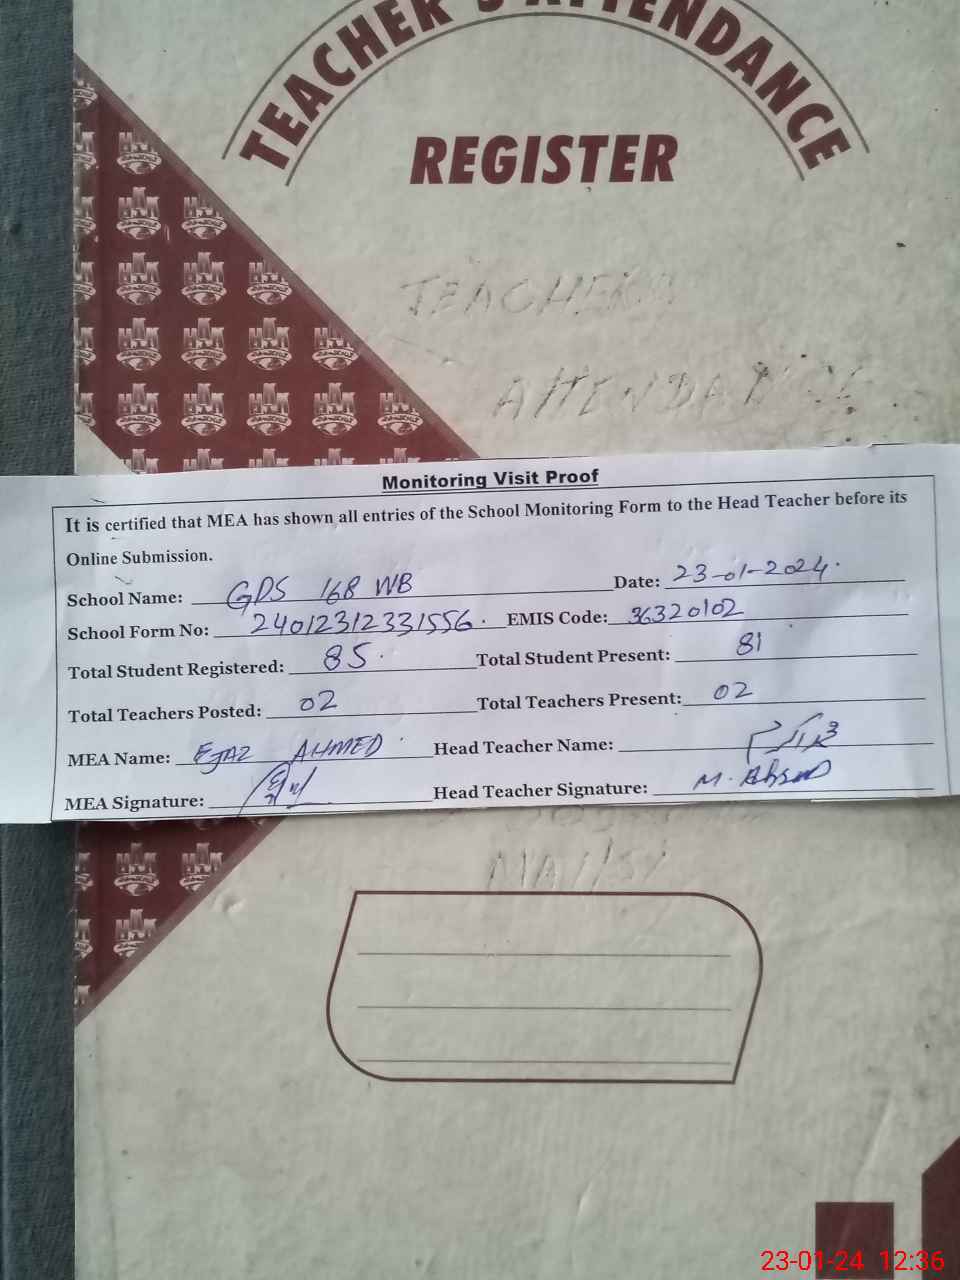 TEACHER'S ATTENDANCE
REGISTER
TEACHERS
ATTENDANCE
Monitoring Visit Proof
It is certified that MEA has shown all entries of the School Monitoring Form to the Head Teacher before its
Online Submission.
School Name: GPS 168 WB Date: 23-01-2024.
School Form No: 24012312331556. EMIS Code: 36320102
Total Student Registered: 85. Total Student Present: 81
Total Teachers Posted: 02 Total Teachers Present: 02
MEA Name: EJAZ AHMED. Head Teacher Name:
MEA Signature: Head Teacher Signature: M. Ahsan
23-01-24 12:36